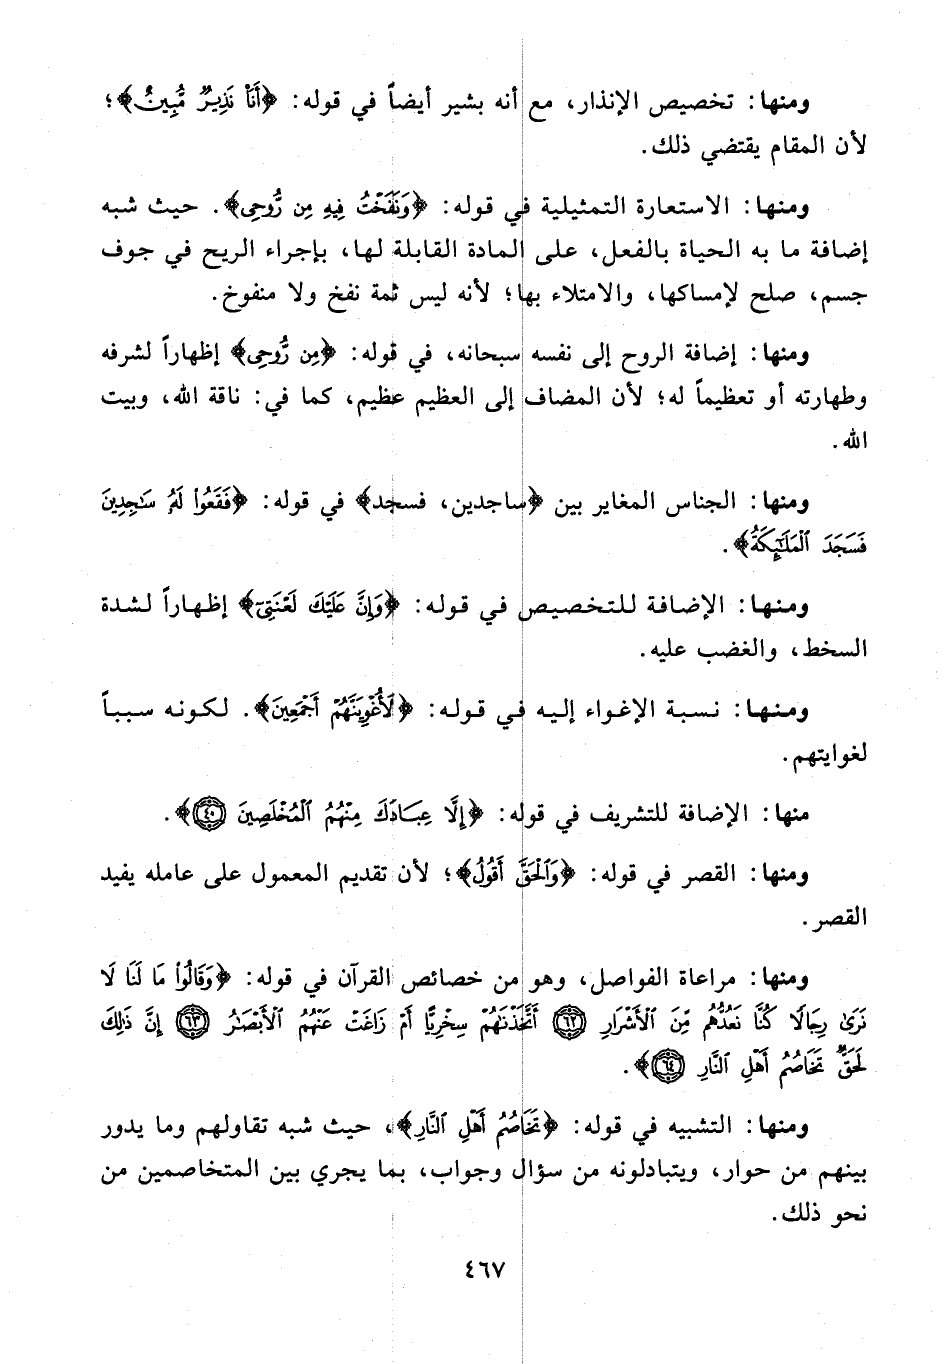 ومنها: تخصيص الإنذار، مع أنه بشير أيضاً في قوله: ﴿أَنَا۠ نَذِيرٌ مُّبِينٌ﴾؛
لأن المقام يقتضي ذلك.
ومنها: الاستعارة التمثيلية في قوله: ﴿وَنَفَخْتُ فِيهِ مِن رُّوحِى﴾. حيث شبه
إضافة ما به الحياة بالفعل، على المادة القابلة لها، بإجراء الريح في جوف
جسم، صلح لإمساكها، والامتلاء بها؛ لأنه ليس ثمة نفخ ولا منفوخ.
ومنها: إضافة الروح إلى نفسه سبحانه، في قوله: ﴿مِن رُّوحِى﴾ إظهاراً لشرفه
وطهارته أو تعظيماً له؛ لأن المضاف إلى العظيم عظيم، كما في: ناقة الله، وبيت
الله.
ومنها: الجناس المغاير بين ﴿ساجدين، فسجد﴾ في قوله: ﴿فَقَعُوا۟ لَهُۥ سَٰجِدِينَ
فَسَجَدَ ٱلْمَلَٰٓئِكَةُ﴾.
ومنها: الإضافة للتخصيص في قوله: ﴿وَإِنَّ عَلَيْكَ لَعْنَتِىٓ﴾ إظهاراً لشدة
السخط، والغضب عليه.
ومنها: نسبة الإغواء إليه في قوله: ﴿لَأُغْوِيَنَّهُمْ أَجْمَعِينَ﴾. لكونه سبباً
لغوايتهم.
منها: الإضافة للتشريف في قوله: ﴿إِلَّا عِبَادَكَ مِنْهُمُ ٱلْمُخْلَصِينَ ٤٠﴾.
ومنها: القصر في قوله: ﴿وَٱلْحَقَّ أَقُولُ﴾؛ لأن تقديم المعمول على عامله يفيد
القصر.
ومنها: مراعاة الفواصل، وهو من خصائص القرآن في قوله: ﴿وَقَالُوا۟ مَا لَنَا لَا
نَرَىٰ رِجَالًا كُنَّا نَعُدُّهُم مِّنَ ٱلْأَشْرَارِ ٦٢ أَتَّخَذْنَٰهُمْ سِخْرِيًّا أَمْ زَاغَتْ عَنْهُمُ ٱلْأَبْصَٰرُ ٦٣ إِنَّ ذَٰلِكَ
لَحَقٌّ تَخَاصُمُ أَهْلِ ٱلنَّارِ ٦٤﴾.
ومنها: التشبيه في قوله: ﴿تَخَاصُمُ أَهْلِ ٱلنَّارِ﴾، حيث شبه تقاولهم وما يدور
بينهم من حوار، ويتبادلونه من سؤال وجواب، بما يجري بين المتخاصمين من
نحو ذلك.
٤٦٧